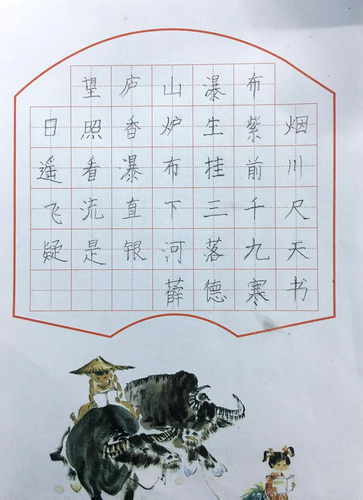 望庐山瀑布
日照香炉生紫烟
遥看瀑布挂前川
飞流直下三千尺
疑是银河落九天
薛德寒书